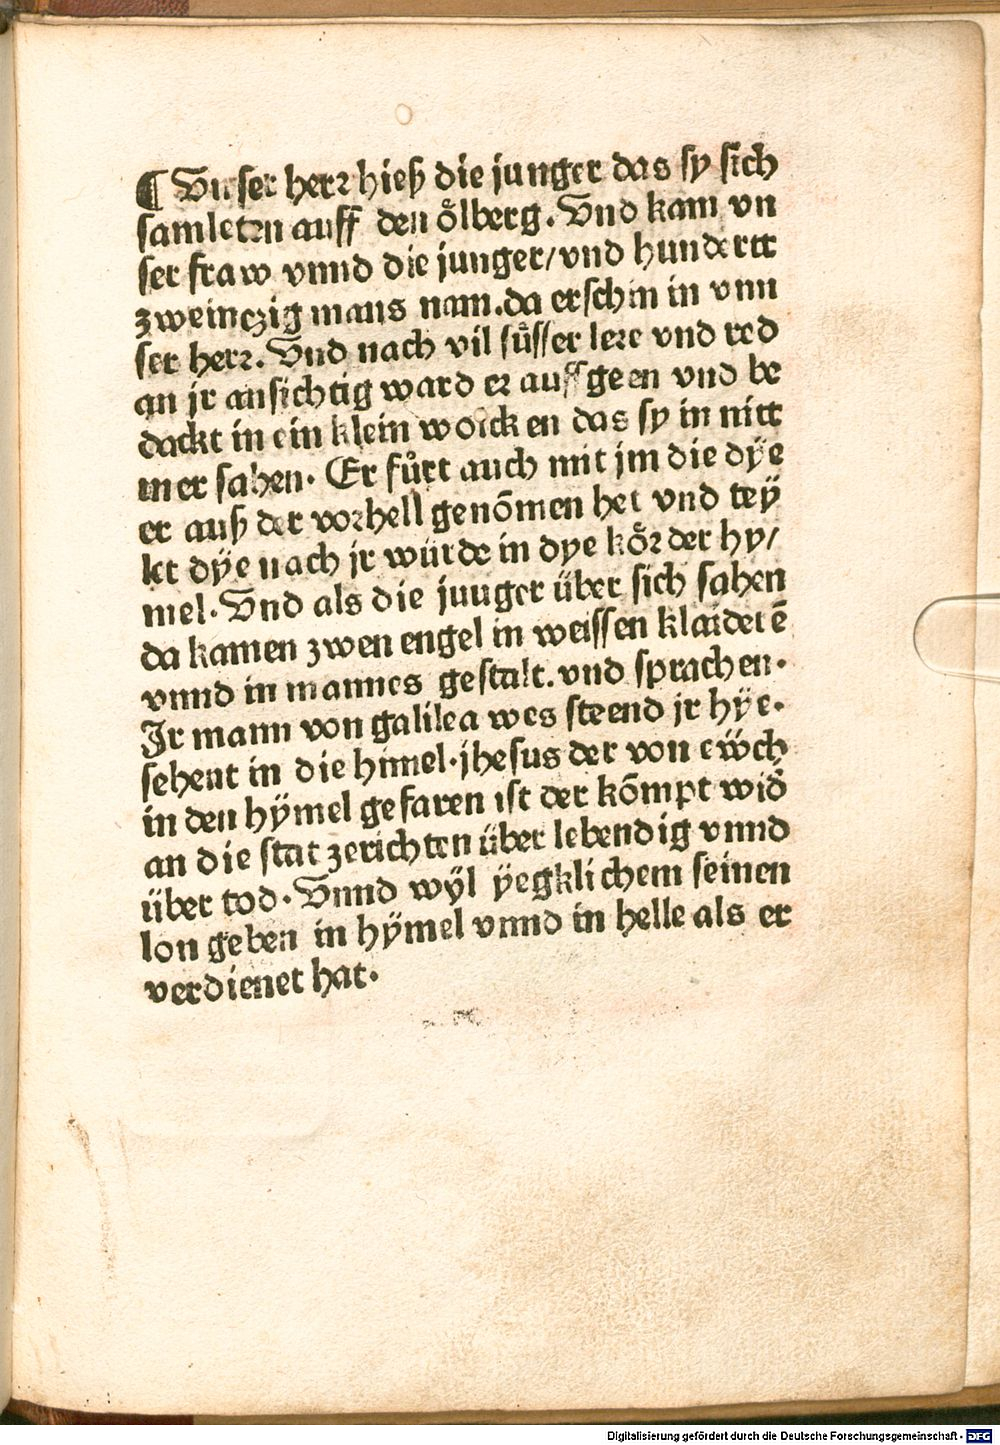 ¶ Vnser herr hieß die junger das sy sich
samleten auff den ölberg. Vnd kam vn
ser fraw vnnd die junger/vnd hundertt
zweinczig mans nam.da erschin in vnn
ser herr. Vnd nach vil süsser lere vnd red
an jr ansichtig ward er auffgeen vnd be
dackt in ein klein wolcken das sy in nitt
mer sahen. Er fůrt auch mit jm die dÿe
er auß der vorhell genōmen het vnd teÿ
let dÿe nach jr würde in dye kör der hy/
mel. Vnd als die junger über sich sahen
da kamen zwen engel in weissen klaiderē
vnnd in mannes gestalt.vnd sprachen.
Jr mann von galilea wes steend jr hÿe.
sehent in die himel.jhesus der von eẅch
in den hÿmel gefaren ist der kōmpt wid̓
an die stat zerichten über lebendig vnnd
über tod. Vnnd wÿl ÿegklichem seinen
lon geben in hÿmel vnnd in helle als er
verdienet hat.
Digitalisierung gefördert durch die Deutsche Forschungsgemeinschaft - DFG